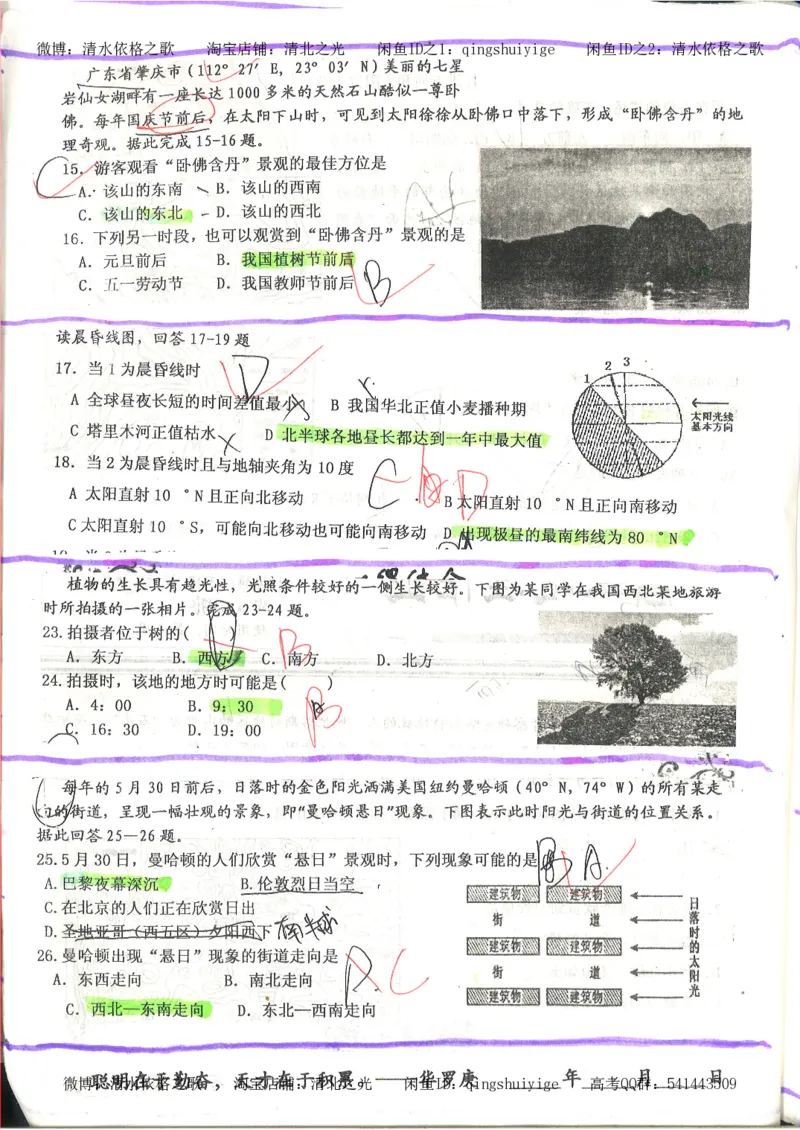 微博：清水依格之歌 淘宝店铺：清北之光 闲鱼ID之1：qingshuiyige 闲鱼ID之2：清水依格之歌
广东省肇庆市（112° 27′ E，23° 03′ N）美丽的七星
岩仙女湖畔有一座长达 1000 多米的天然石山酷似一尊卧
佛。每年国庆节前后，在太阳下山时，可见到太阳徐徐从卧佛口中落下，形成“卧佛含丹”的地
理奇观。据此完成 15-16 题。
15．游客观看“卧佛含丹”景观的最佳方位是
C
A．该山的东南 B．该山的西南
C．该山的东北 D．该山的西北
16．下列另一时段，也可以观赏到“卧佛含丹”景观的是
A．元旦前后 B．我国植树节前后
C．五一劳动节 D．我国教师节前后
B
读晨昏线图，回答 17-19 题
17．当 1 为晨昏线时
D
A 全球昼夜长短的时间差值最小 B 我国华北正值小麦播种期
C 塔里木河正值枯水 D 北半球各地昼长都达到一年中最大值
1 2 3
太阳光线
基本方向
18．当 2 为晨昏线时且与地轴夹角为 10 度
C D
A 太阳直射 10 °N 且正向北移动 B 太阳直射 10 °N 且正向南移动
C 太阳直射 10 °S，可能向北移动也可能向南移动 D 出现极昼的最南纬线为 80 °N
植物的生长具有趋光性，光照条件较好的一侧生长较好。下图为某同学在我国西北某地旅游
时所拍摄的一张相片。完成 23-24 题。
23.拍摄者位于树的( )
B
A．东方 B．西方 C．南方 D．北方
24.拍摄时，该地的地方时可能是( )
B
A．4：00 B．9：30
C．16：30 D．19：00
每年的 5 月 30 日前后，日落时的金色阳光洒满美国纽约曼哈顿（40° N，74° W）的所有某走
向的街道，呈现一幅壮观的景象，即“曼哈顿悬日”现象。下图表示此时阳光与街道的位置关系。
据此回答 25—26 题。
25.5 月 30 日，曼哈顿的人们欣赏“悬日”景观时，下列现象可能的是
B A.
A.巴黎夜幕深沉 B.伦敦烈日当空
C.在北京的人们正在欣赏日出
D.圣地亚哥（西五区）夕阳西下 南半球
26.曼哈顿出现“悬日”现象的街道走向是
C
A．东西走向 B．南北走向
C．西北—东南走向 D．东北—西南走向
建筑物 建筑物
街 道
建筑物 建筑物
街 道
建筑物 建筑物
日落时的太阳光
聪明在于勤奋，天才在于积累。——华罗庚 年 月 日
微博：清水依格之歌 淘宝店铺：清北之光 闲鱼ID：qingshuiyige 高考QQ群：541443509